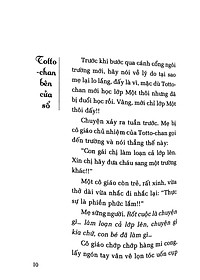 Totto
-chan
bên
cửa
sổ
Trước khi bước qua cánh cổng ngôi
trường mới, hãy nói về lý do tại sao
mẹ lại lo lắng, đấy là vì, mặc dù Totto-
chan mới học lớp Một thôi nhưng đã
bị đuổi học rồi. Vâng, mới chỉ lớp Một
thôi đấy!!
Chuyện xảy ra tuần trước. Mẹ bị
cô giáo chủ nhiệm của Totto-chan gọi
đến trường và nói thẳng thế này:
"Con gái chị làm loạn cả lớp lên.
Xin chị hãy đưa cháu sang một trường
khác!!"
Một cô giáo còn trẻ, rất xinh, vừa
thở dài vừa nhắc đi nhắc lại: "Thực
sự là phiền phức lắm!!"
Mẹ sững người. Rốt cuộc là chuyện
gì... làm loạn cả lớp lên, chuyện gì
kia chứ, con bé đã làm gì...
Cô giáo chớp chớp hàng mi cong,
lấy ngón tay vân vê lọn tóc uốn cụp
10